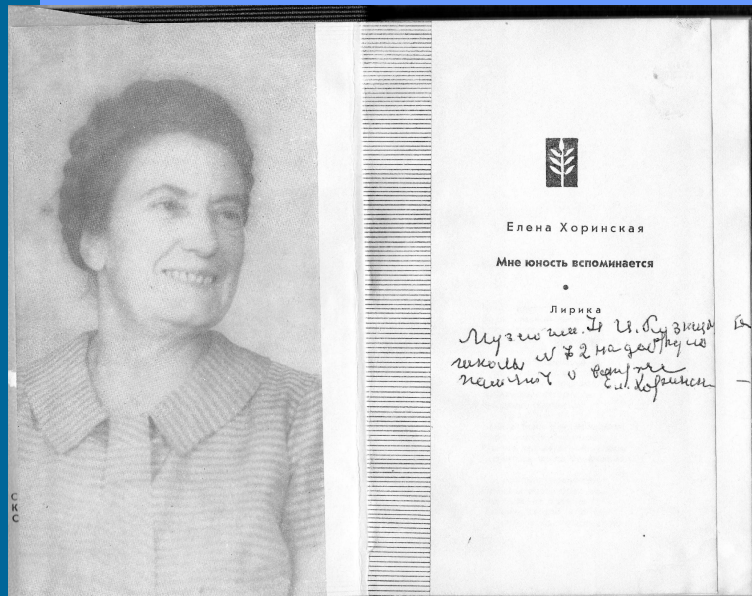 Елена Хоринская
Мне юность вспоминается
Лирика
Музею им. Н И. Кузнецова
школы № 72 на добрую
память о встрече
Ел. Хоринск
С
К
С